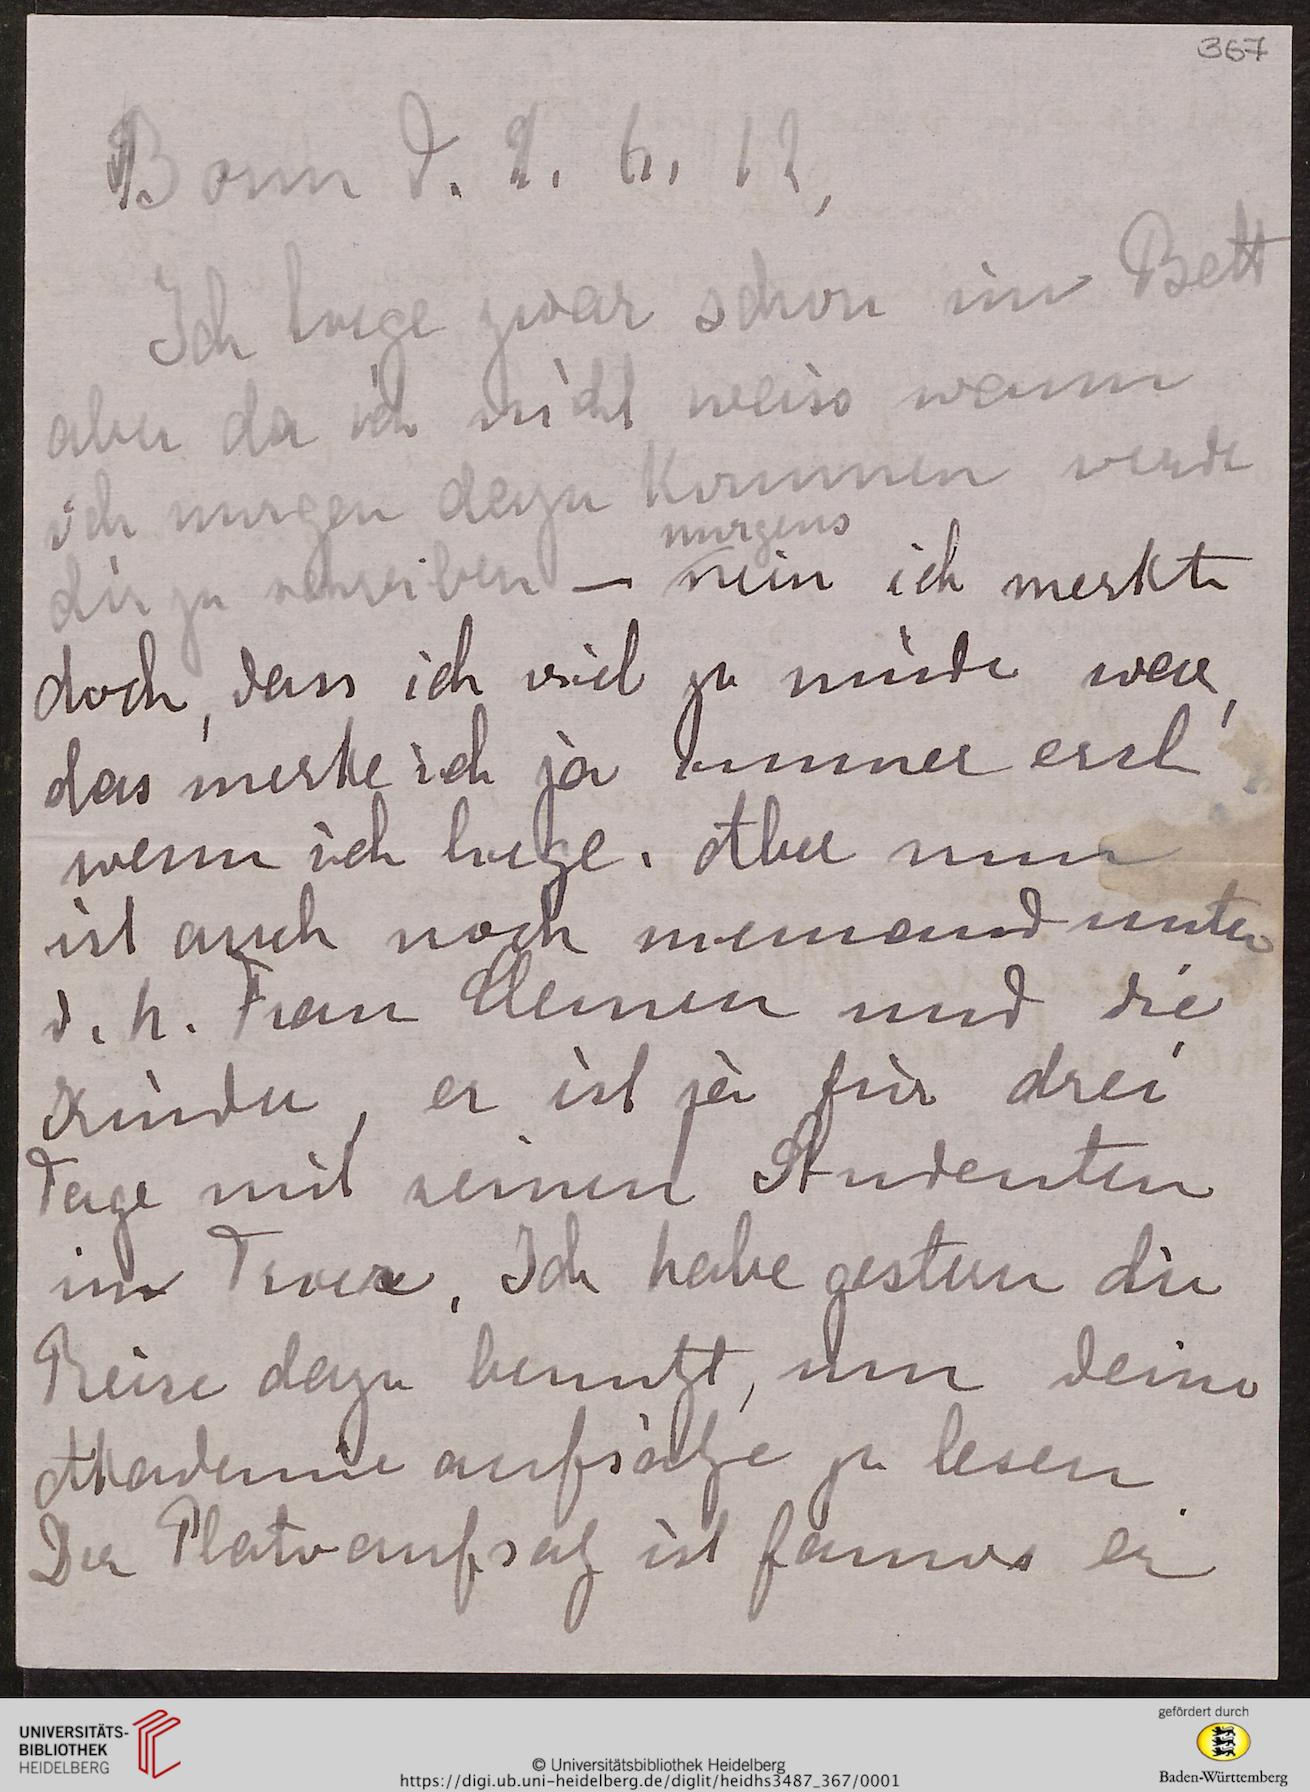 367
Bonn d. 2. 6. 12,
Ich liege zwar schon im Bett
aber da ich nicht weiss wann
ich morgen dazu kommen werde
dir zu schreiben — nein ich merkte
morgens
doch, dass ich viel zu müde war,
das merke ich ja immer erst
wenn ich liege. Aber nun
ist auch noch niemand unten
d. h. Frau Clemen und die
Kinder, er ist ja für drei
Tage mit seinen Studenten
in Trier. Ich habe gestern die
Reise dazu benutzt, um deine
Akademieaufsätze zu lesen.
Der Platoaufsatz ist famos er
UNIVERSITÄTS-
BIBLIOTHEK
HEIDELBERG
© Universitätsbibliothek Heidelberg
https://digi.ub.uni-heidelberg.de/diglit/heidhs3487_367/0001
gefördert durch
Baden-Württemberg